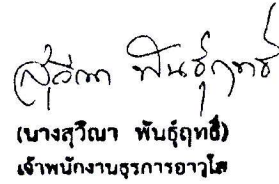 สุวีณา พันธุ์ฤทธิ์
(นางสุวีณา พันธุ์ฤทธิ์)
เจ้าพนักงานธุรการอาวุโส